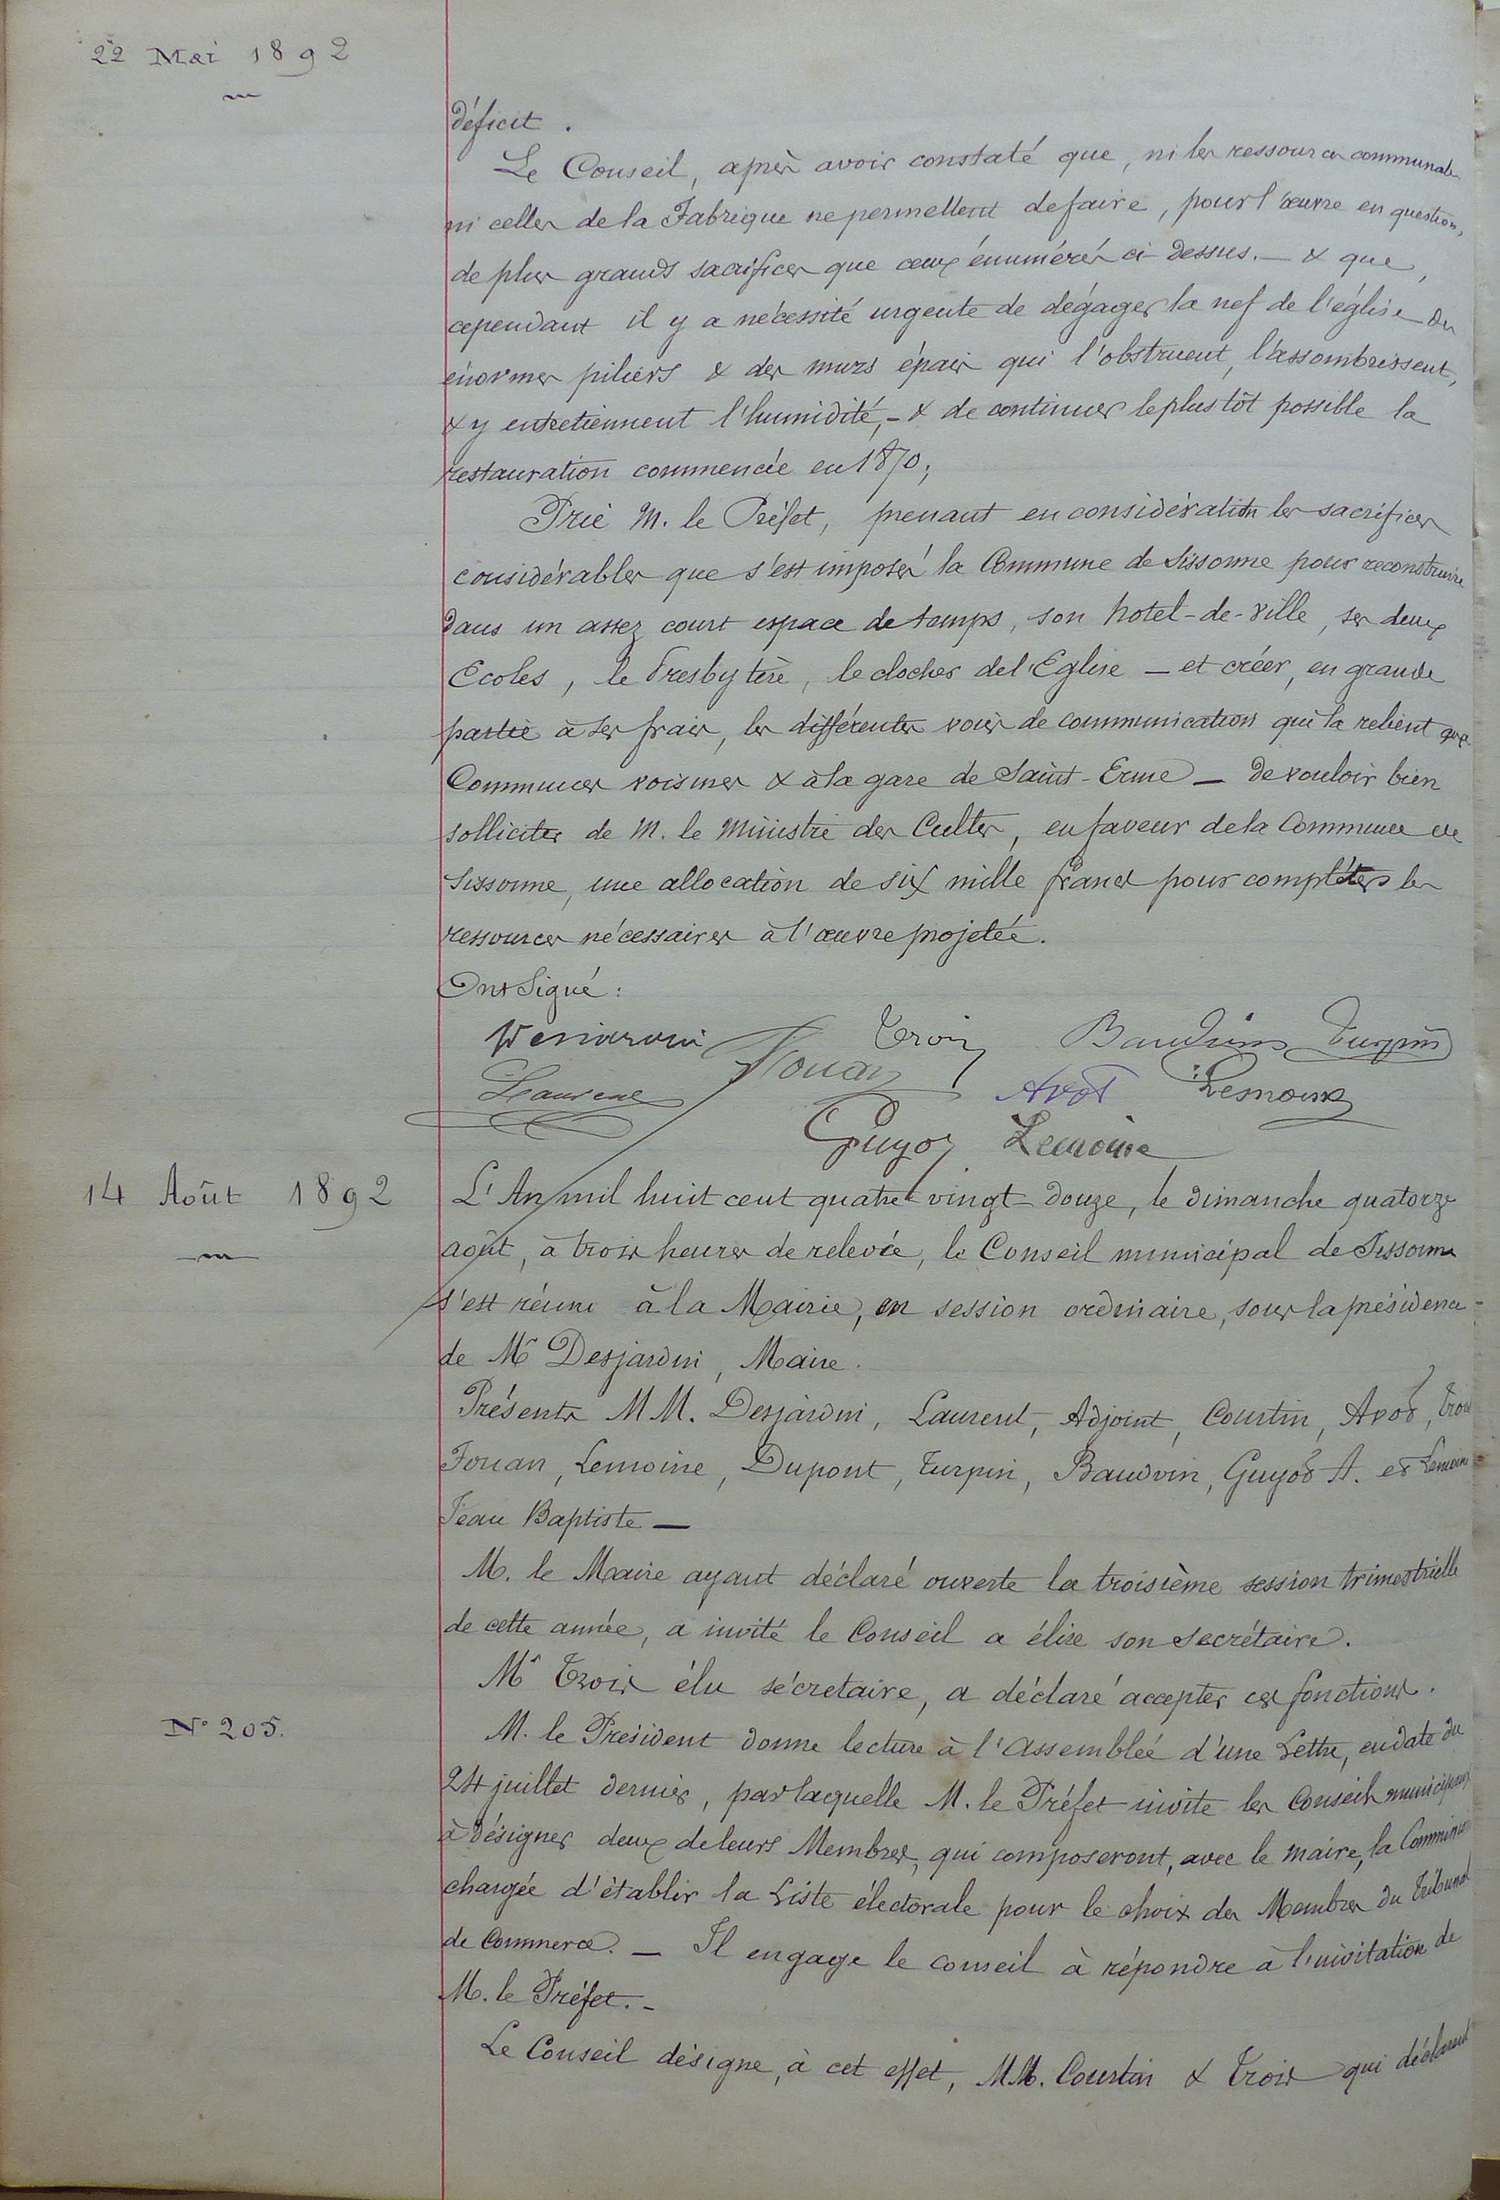 22 Mai 1892
déficit.
Le Conseil, après avoir constaté que, ni les ressources communales
ni celles de la Fabrique ne permettent de faire, pour l'œuvre en question,
de plus grands sacrifices que ceux énumérés ci-dessus. — & que,
cependant il y a nécessité urgente de dégager la nef de l'église des
énormes piliers & des murs épais qui l'obstruent, l'assombrissent,
& y entretiennent l'humidité, - & de continuer le plus tôt possible la
restauration commencée en 1870;
Prie M. le Préfet, prenant en considération les sacrifices
considérables que s'est imposés la Commune de Sissonne pour reconstruire
dans un assez court espace de temps, son hotel-de-ville, ses deux
Ecoles, le Presbytère, le clocher de l'Eglise — et créer, en grande
partie à ses frais, les différentes voies de communication qui la relient aux
Communes voisines & à la gare de Saint-Erme — de vouloir bien
solliciter de M. le Ministre des Cultes, en faveur de la Commune de
Sissonne, une allocation de six mille francs pour compléter les
ressources nécessaires à l'œuvre projetée.
Ont Signé:
Trois Baudoin Turpin
Laurent Fouan Avot
Guyot Lemoine
14 Août 1892
L'An mil huit cent quatre-vingt-douze, le dimanche quatorze
août, à trois heures de relevée, le Conseil municipal de Sissonne
s'est réuni à la Mairie, en session ordinaire, sous la présidence
de Mr Desjardin, Maire.
Présents MM. Desjardin, Laurent, Adjoint, Courtin, Avot, Trois
Fouan, Lemoine, Dupont, Turpin, Baudoin, Guyot A. et Lemoine
Jean Baptiste —
M. le Maire ayant déclaré ouverte la troisième session trimestrielle
de cette année, a invité le Conseil a élire son secrétaire.
Mr Trois élu sécretaire, a déclaré accepter ces fonctions.
N° 205.
M. le Président donne lecture à l'Assemblée d'une Lettre, en date du
24 juillet dernier, par laquelle M. le Préfet invite les Conseils municipaux
à désigner deux de leurs Membres, qui composeront, avec le maire, la Commission
chargée d'établir la Liste électorale pour le choix des Membres du Tribunal
de Commerce. — Il engage le conseil à répondre à l'invitation de
M. le Préfet. -
Le Conseil désigne, à cet effet, MM. Courtin & Trois qui déclarent